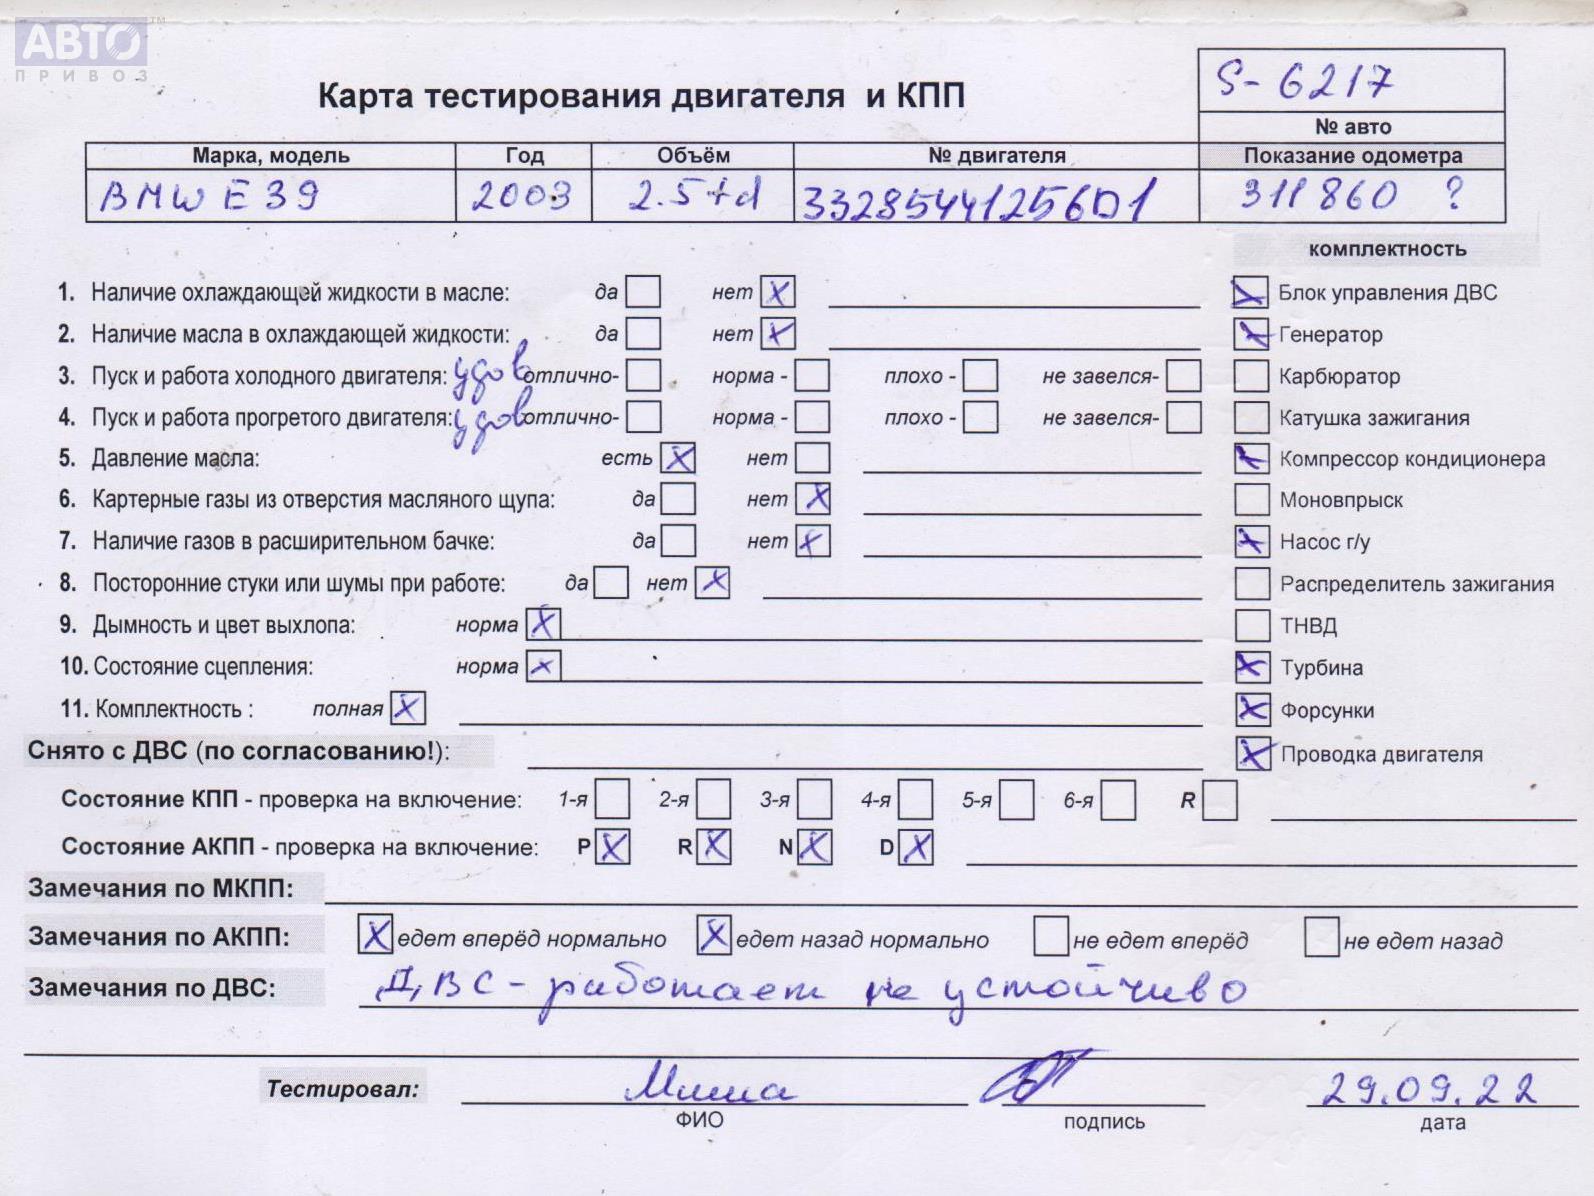 АВТО™
ПРИВОЗ
S-6217
Карта тестирования двигателя и КПП
№ авто
Марка, модель Год Объём № двигателя Показание одометра
BMW E39 2003 2.5td 33285441256D1 311860 ?
комплектность
1. Наличие охлаждающей жидкости в масле: да нет X Блок управления ДВС
2. Наличие масла в охлаждающей жидкости: да нет X Генератор
3. Пуск и работа холодного двигателя: удов отлично- норма - плохо - не завелся- Карбюратор
4. Пуск и работа прогретого двигателя: удов отлично- норма - плохо - не завелся- Катушка зажигания
5. Давление масла: есть X нет Компрессор кондиционера
6. Картерные газы из отверстия масляного щупа: да нет X Моновпрыск
7. Наличие газов в расширительном бачке: да нет X Насос г/у
8. Посторонние стуки или шумы при работе: да нет X Распределитель зажигания
9. Дымность и цвет выхлопа: норма X ТНВД
10. Состояние сцепления: норма X Турбина
11. Комплектность : полная X Форсунки
Снято с ДВС (по согласованию!): Проводка двигателя
Состояние КПП - проверка на включение: 1-я 2-я 3-я 4-я 5-я 6-я R
Состояние АКПП - проверка на включение: P X R X N X D X
Замечания по МКПП:
Замечания по АКПП: X едет вперёд нормально X едет назад нормально не едет вперёд не едет назад
Замечания по ДВС: ДВС - работает не устойчиво
Тестировал: Миша 29.09.22
ФИО подпись дата